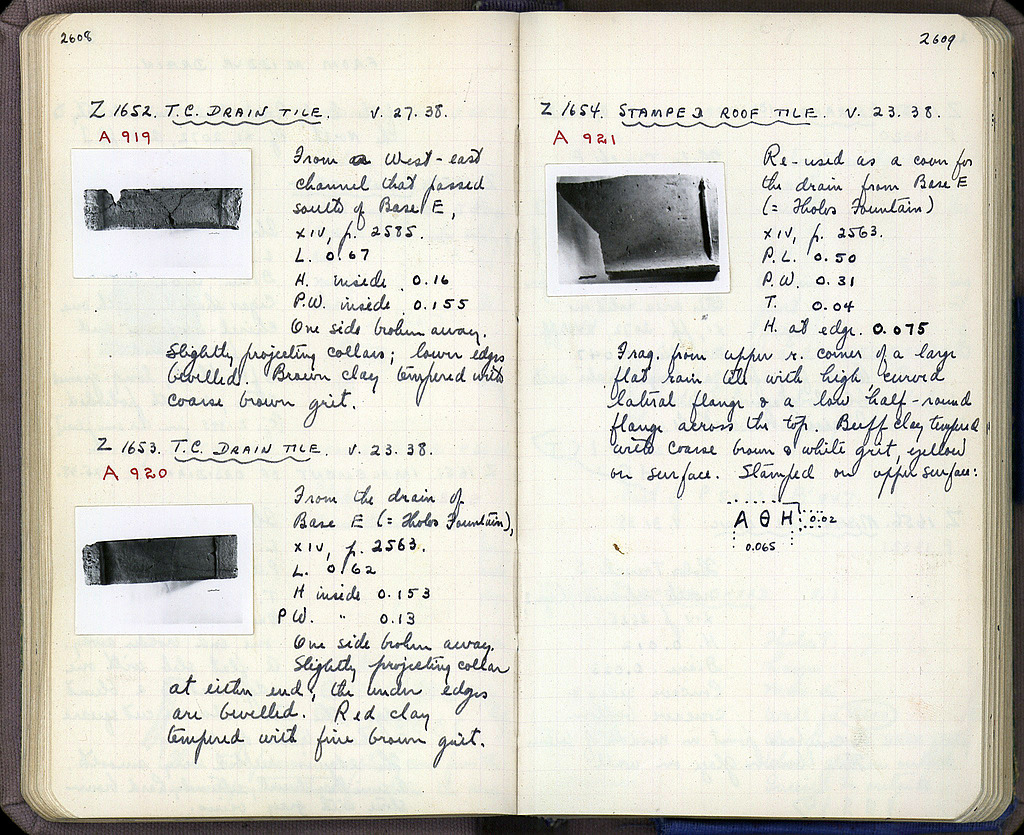 2608
Z 1652. T.C. DRAIN TILE. V. 27. 38.
A 919
From a West-east
channel that passed
south of Base E,
XIV, p. 2585.
L. 0.67
H. inside 0.16
P.W. inside 0.155
One side broken away.
Slightly projecting collars; lower edges
bevelled. Brown clay tempered with
coarse brown grit.
Z 1653. T.C. DRAIN TILE. V. 23. 38.
A 920
From the drain of
Base E (= Tholos Fountain),
XIV, p. 2563.
L. 0.62
H inside 0.153
P W. " 0.13
One side broken away.
Slightly projecting collar
at either end; the under edges
are bevelled. Red clay
tempered with fine brown grit.
2609
Z 1654. STAMPED ROOF TILE. V. 23. 38.
A 921
Re-used as a cover for
the drain from Base E
(= Tholos Fountain)
XIV, p. 2563.
P.L. 0.50
P.W. 0.31
T. 0.04
H. at edge. 0.075
Frag. from upper r. corner of a large
flat rain tile with high, curved
lateral flange & a low half-round
flange across the top. Buff clay tempered
with coarse brown & white grit, yellow
on surface. Stamped on upper surface:
Α Θ Η 0.02
0.065